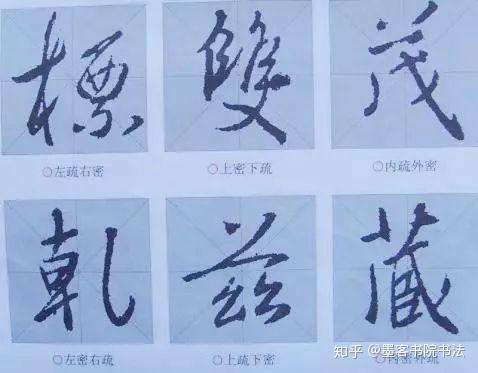 標 雙 茂
○左疏右密 ○上密下疏 ○内疏外密
乾 茲 藏
○左密右疏 ○上疏下密 ○内密外疏
知乎 @墨客书院书法